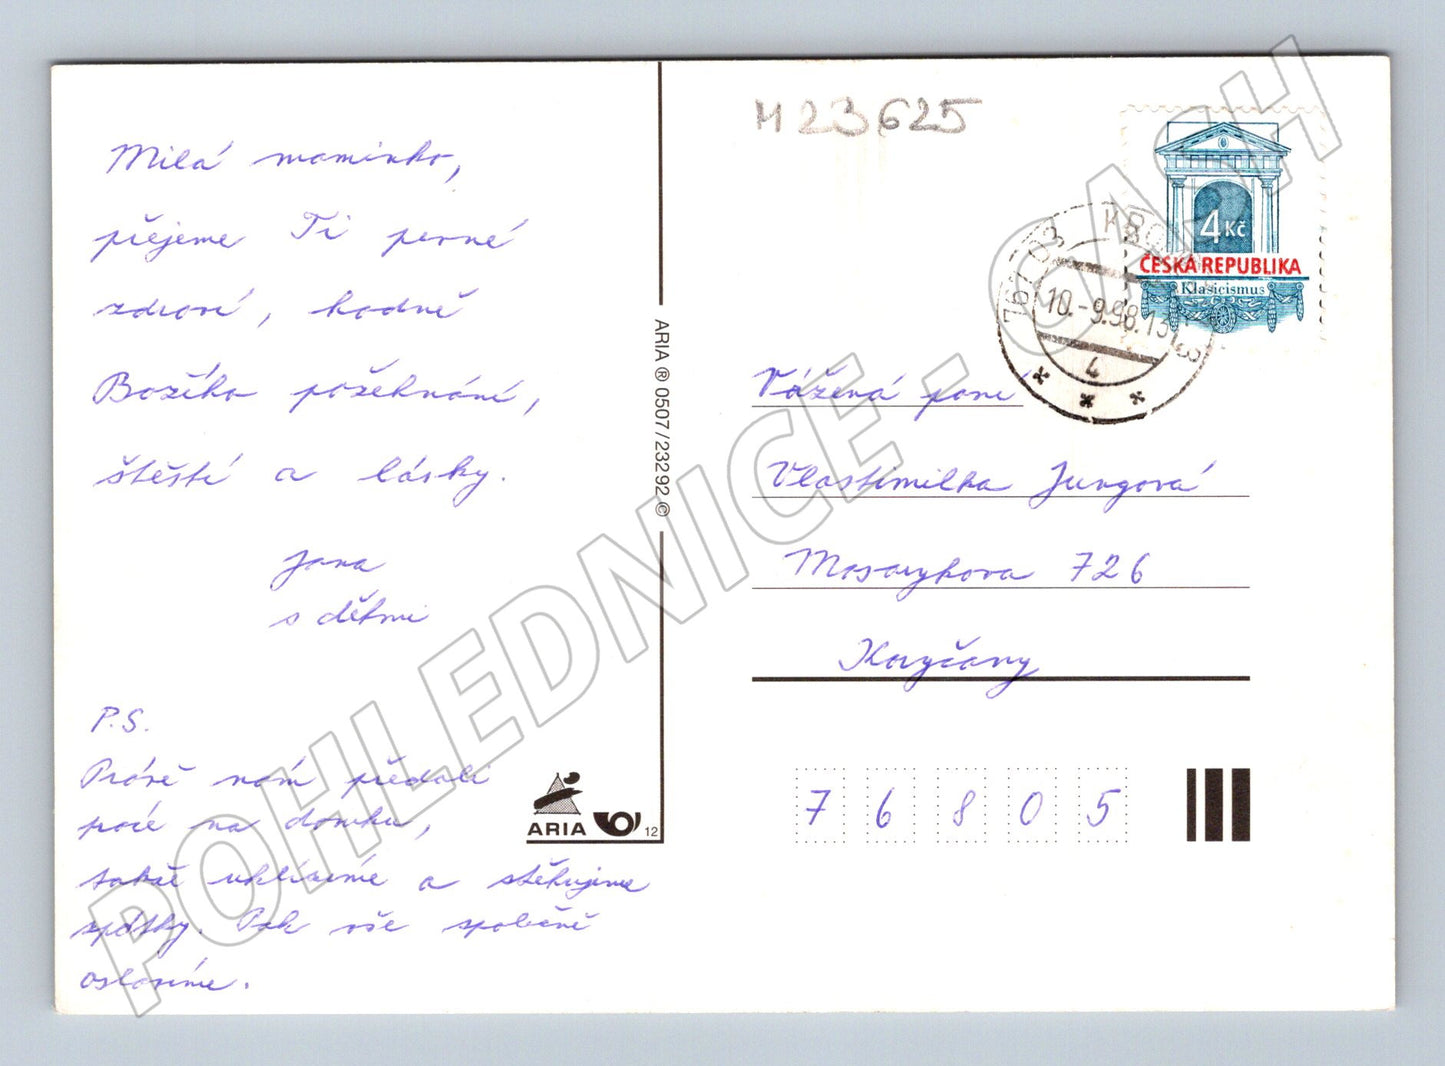 Milá maminko,
přejeme Ti pevné
zdraví, hodně
Božího požehnání,
štěstí a lásky.
Jana
s dětmi
P.S.
Právě nám předali
práce na domku,
takže uklízíme a stěhujeme
zpátky. Pak vše společně
oslavíme.
ARIA ® 0507/23292 ©
ARIA
12
M23625
4 Kč
ČESKÁ REPUBLIKA
Klasicismus
10.-9.98.13
4
Vážená paní
Vlastimilka Jungová
Masarykova 726
Koryčany
76805
POHLEDNICE - CASH